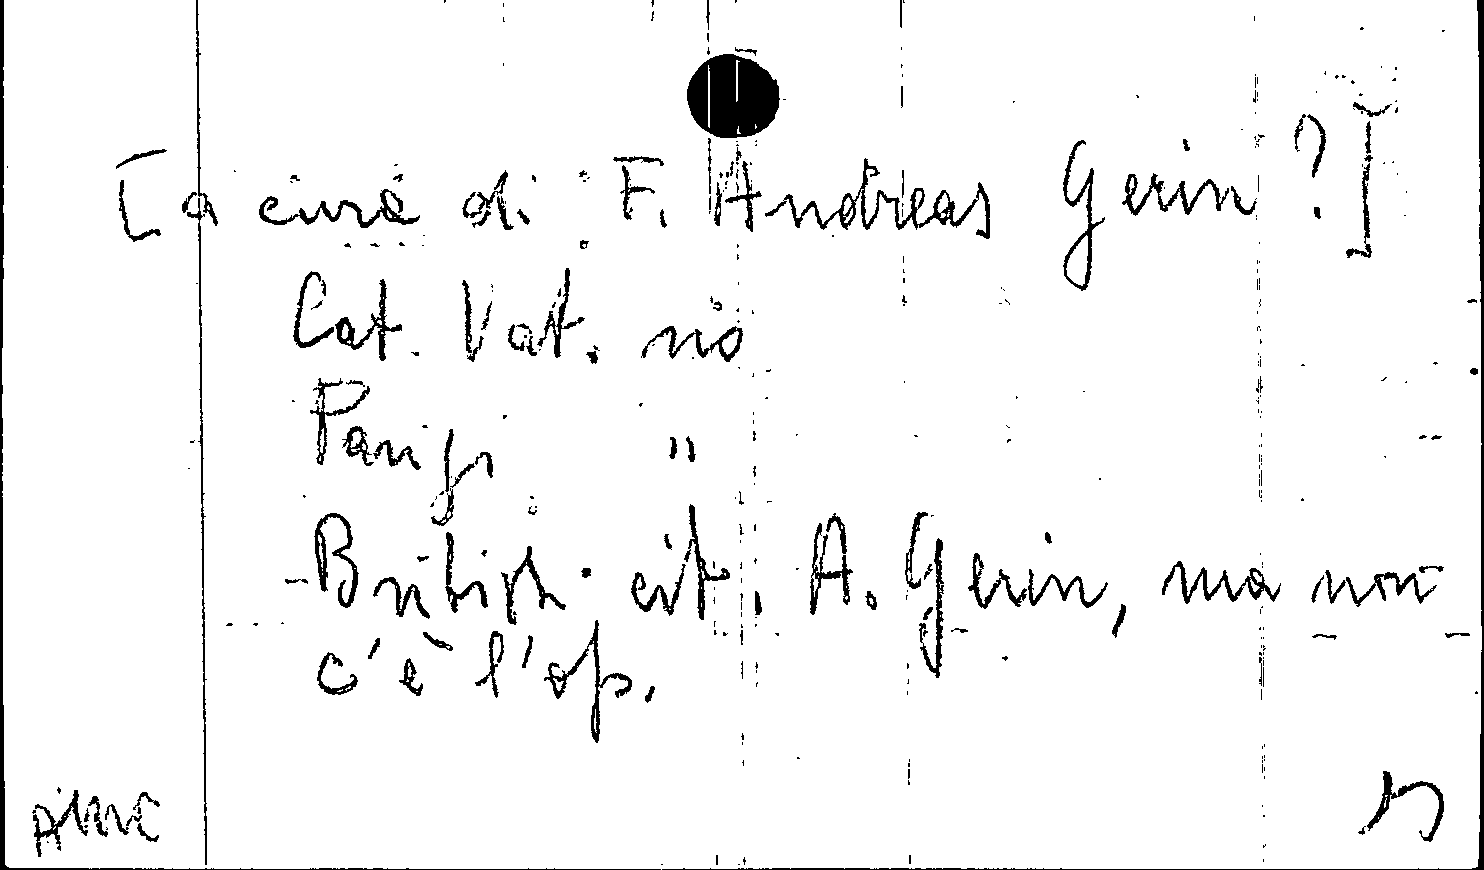 [a cura di F. Andreas Gerin?]
Cat. Vat. no
Parigi "
British cit. A. Gerin, ma non
c'è l'op.
AMC